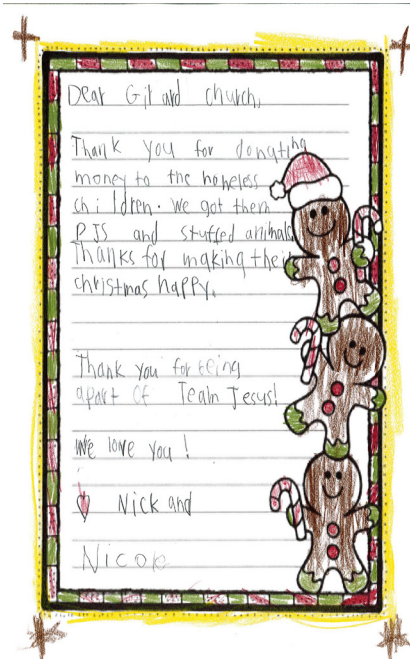 Dear Girard church,
Thank you for donating
money to the homeless
children. We got them
PJS and stuffed animals
Thanks for making their
christmas happy.
Thank you for being
apart of Team Jesus!
We love you!
Nick and
Nicole